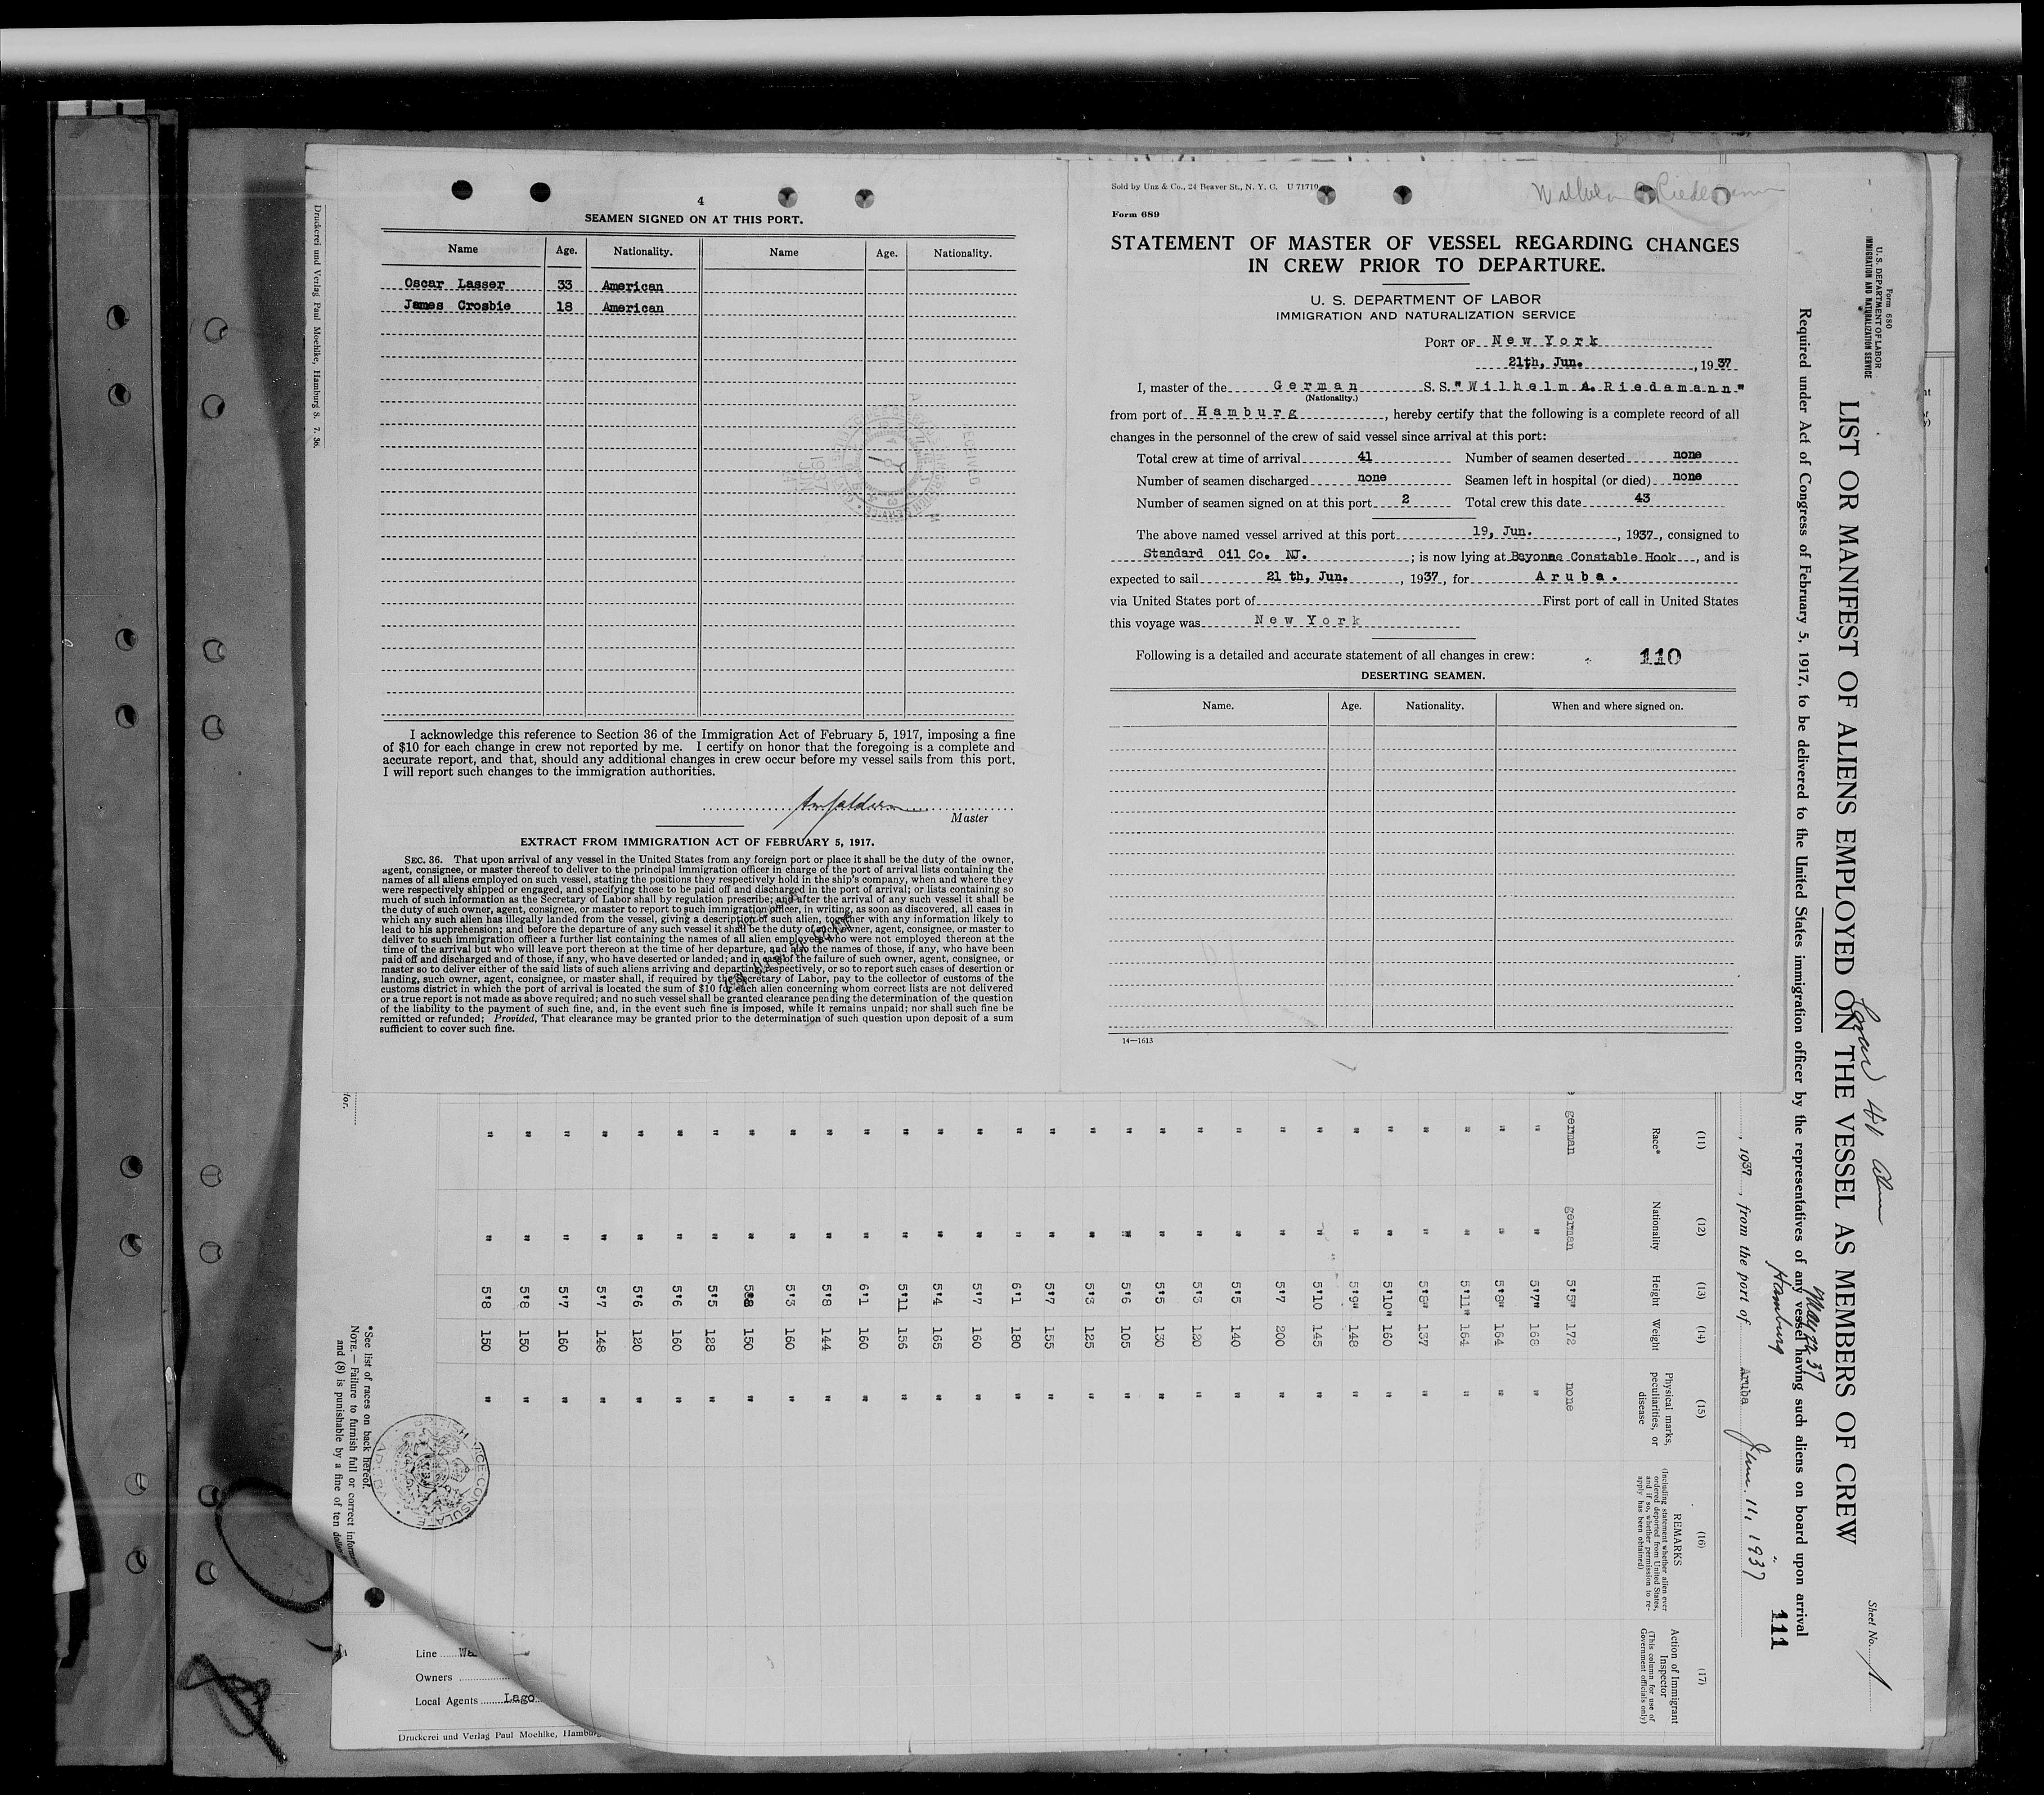 4
SEAMEN SIGNED ON AT THIS PORT.
Name Age. Nationality. Name Age. Nationality.
Oscar Lasser 33 American
James Crosbie 18 American
I acknowledge this reference to Section 36 of the Immigration Act of February 5, 1917, imposing a fine
of $10 for each change in crew not reported by me. I certify on honor that the foregoing is a complete and
accurate report, and that, should any additional changes in crew occur before my vessel sails from this port,
I will report such changes to the immigration authorities.
Master
EXTRACT FROM IMMIGRATION ACT OF FEBRUARY 5, 1917.
SEC. 36. That upon arrival of any vessel in the United States from any foreign port or place it shall be the duty of the owner,
agent, consignee, or master thereof to deliver to the principal immigration officer in charge of the port of arrival lists containing the
names of all aliens employed on such vessel, stating the positions they respectively hold in the ship's company, when and where they
were respectively shipped or engaged, and specifying those to be paid off and discharged in the port of arrival; or lists containing so
much of such information as the Secretary of Labor shall by regulation prescribe; and after the arrival of any such vessel it shall be
the duty of such owner, agent, consignee, or master to report to such immigration officer, in writing, as soon as discovered, all cases in
which any such alien has illegally landed from the vessel, giving a description of such alien, together with any information likely to
lead to his apprehension; and before the departure of any such vessel it shall be the duty of such owner, agent, consignee, or master to
deliver to such immigration officer a further list containing the names of all alien employees who were not employed thereon at the
time of the arrival but who will leave port thereon at the time of her departure, and also the names of those, if any, who have been
paid off and discharged and of those, if any, who have deserted or landed; and in case of the failure of such owner, agent, consignee, or
master so to deliver either of the said lists of such aliens arriving and departing, respectively, or so to report such cases of desertion or
landing, such owner, agent, consignee, or master shall, if required by the Secretary of Labor, pay to the collector of customs of the
customs district in which the port of arrival is located the sum of $10 for each alien concerning whom correct lists are not delivered
or a true report is not made as above required; and no such vessel shall be granted clearance pending the determination of the question
of the liability to the payment of such fine, and, in the event such fine is imposed, while it remains unpaid; nor shall such fine be
remitted or refunded; Provided, That clearance may be granted prior to the determination of such question upon deposit of a sum
sufficient to cover such fine.
Druckerei und Verlag Paul Moehlke, Hamburg 8. 7. 36.
Sold by Unz & Co., 24 Beaver St., N. Y. C. U 71710
Form 689
STATEMENT OF MASTER OF VESSEL REGARDING CHANGES
IN CREW PRIOR TO DEPARTURE.
U. S. DEPARTMENT OF LABOR
IMMIGRATION AND NATURALIZATION SERVICE
PORT OF New York
21th, Jun. , 1937
I, master of the German S. S. "Wilhelm A. Riedemann"
(Nationality.)
from port of Hamburg , hereby certify that the following is a complete record of all
changes in the personnel of the crew of said vessel since arrival at this port:
Total crew at time of arrival 41 Number of seamen deserted none
Number of seamen discharged none Seamen left in hospital (or died) none
Number of seamen signed on at this port 2 Total crew this date 43
The above named vessel arrived at this port 19, Jun. , 1937 , consigned to
Standard Oil Co. NJ. ; is now lying at Bayonne Constable Hook , and is
expected to sail 21 th, Jun. , 1937 , for Aruba.
via United States port of First port of call in United States
this voyage was New York
Following is a detailed and accurate statement of all changes in crew:
110
DESERTING SEAMEN.
Name. Age. Nationality. When and where signed on.
14—1613
Form 680
U. S. DEPARTMENT OF LABOR
IMMIGRATION AND NATURALIZATION SERVICE
Sheet No. 1
LIST OR MANIFEST OF ALIENS EMPLOYED ON THE VESSEL AS MEMBERS OF CREW
Required under Act of Congress of February 5, 1917, to be delivered to the United States immigration officer by the representatives of any vessel having such aliens on board upon arrival
May 22 37
Hamburg
111
, 1937 , from the port of Aruba June 11, 1937
(11) (12) (13) (14) (15) (16) (17)
Race* Nationality Height Weight Physical marks, peculiarities, or disease REMARKS (Including statement whether alien ever ordered deported from United States, and if so, whether permission to re-apply has been obtained) Action of Immigrant Inspector (This column for use of Government officials only)
german german 5'5" 172 none
" " 5'7" 168 "
" " 5'8" 164 "
" " 5'11" 164 "
" " 5'8" 137 "
" " 5'10" 160 "
" " 5'9" 148 "
" " 5'10 145 "
" " 5'7 200 "
" " 5'5 140 "
" " 5'3 120 "
" " 5'5 130 "
" " 5'6 105 "
" " 5'3 125 "
" " 5'7 155 "
" " 6'1 180 "
" " 5'7 160 "
" " 5'4 165 "
" " 5'11 156 "
" " 6'1 160 "
" " 5'8 144 "
" " 5'3 160 "
" " 5'8 150 "
" " 5'5 128 "
" " 5'6 160 "
" " 5'6 120 "
" " 5'7 148 "
" " 5'7 160 "
" " 5'8 150 "
" " 5'8 150 "
*See list of races on back hereof.
NOTE.—Failure to furnish full or correct
and (8) is punishable by a fine of ten
BRITISH VICE-CONSULATE
ARUBA
Line
Owners
Local Agents Lago
Druckerei und Verlag Paul Moehlke,